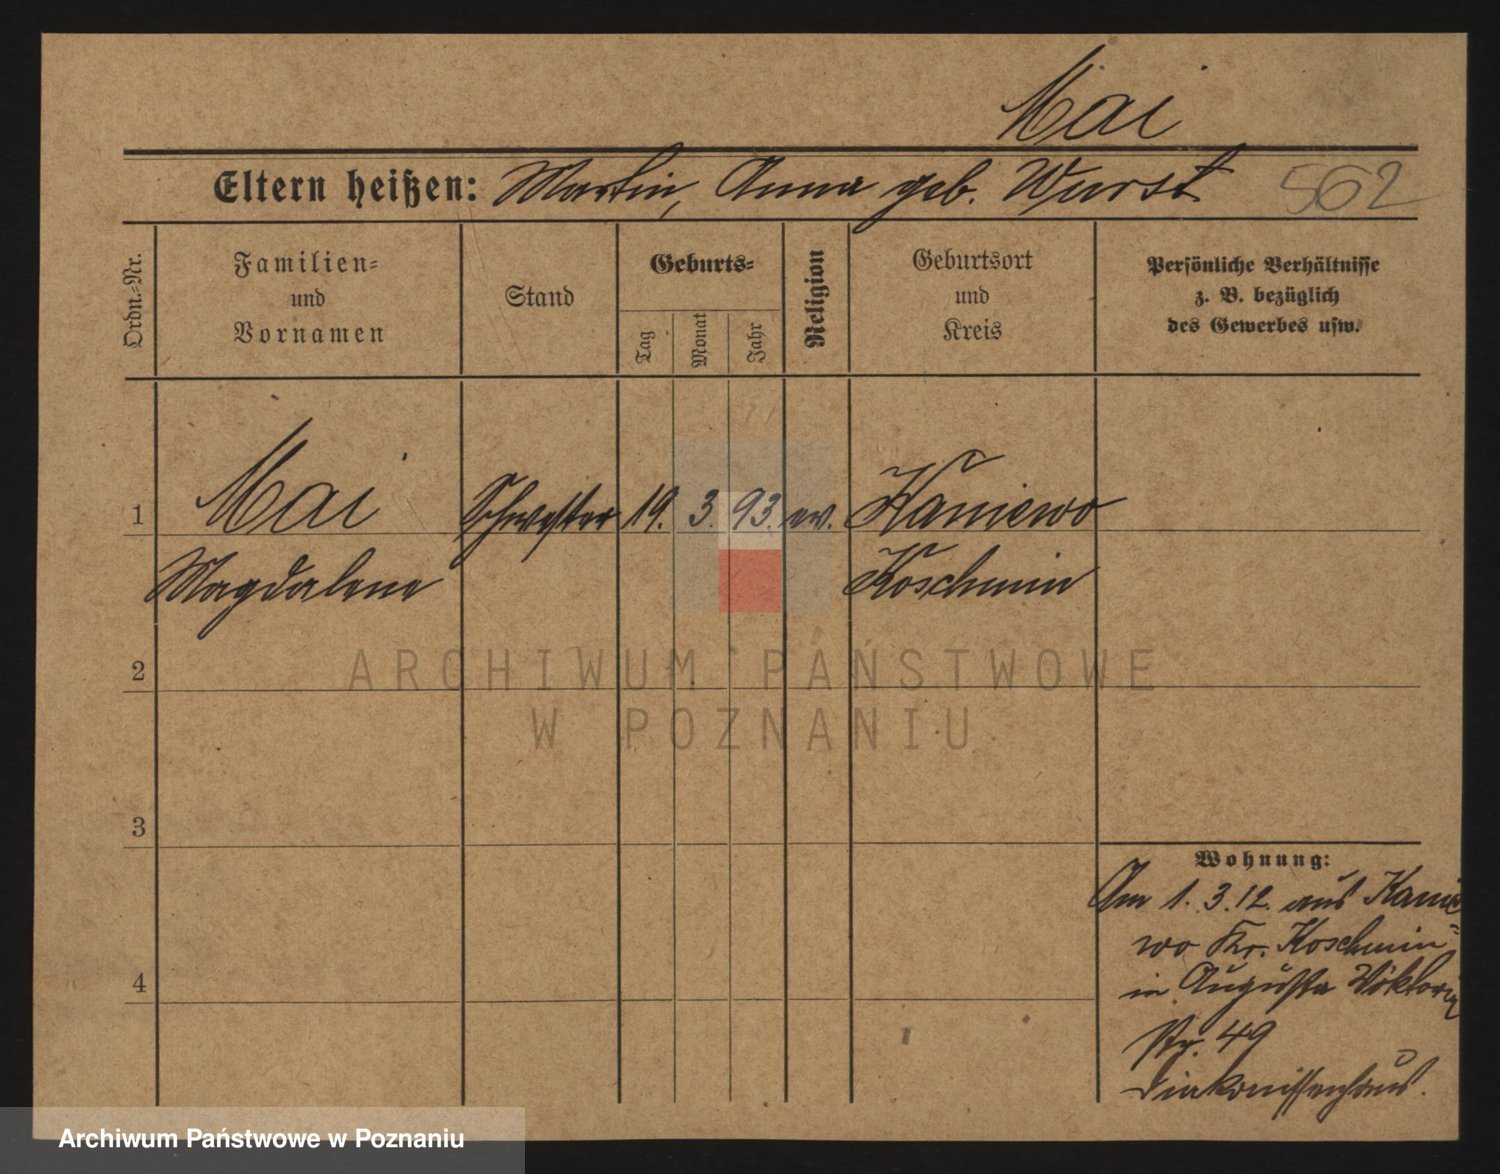 Mai
Eltern heißen: Martin, Anna geb. Wurst 562
Ordn.-Nr.
Familien-
und
Vornamen
Stand
Geburts-
Tag
Monat
Jahr
Religion
Geburtsort
und
Kreis
Persönliche Verhältnisse
z. B. bezüglich
des Gewerbes usw.
1 Mai Schwester 19. 3. 93. ev. Kaniewo
Magdalene Koschmin
2
ARCHIWUM PAŃSTWOWE
W POZNANIU
3
Wohnung:
Am 1. 3. 12. aus Kanie
wo Kr. Koschmin
4
in Augusta Viktoria
Str. 49
Diakonissenhaus.
Archiwum Państwowe w Poznaniu